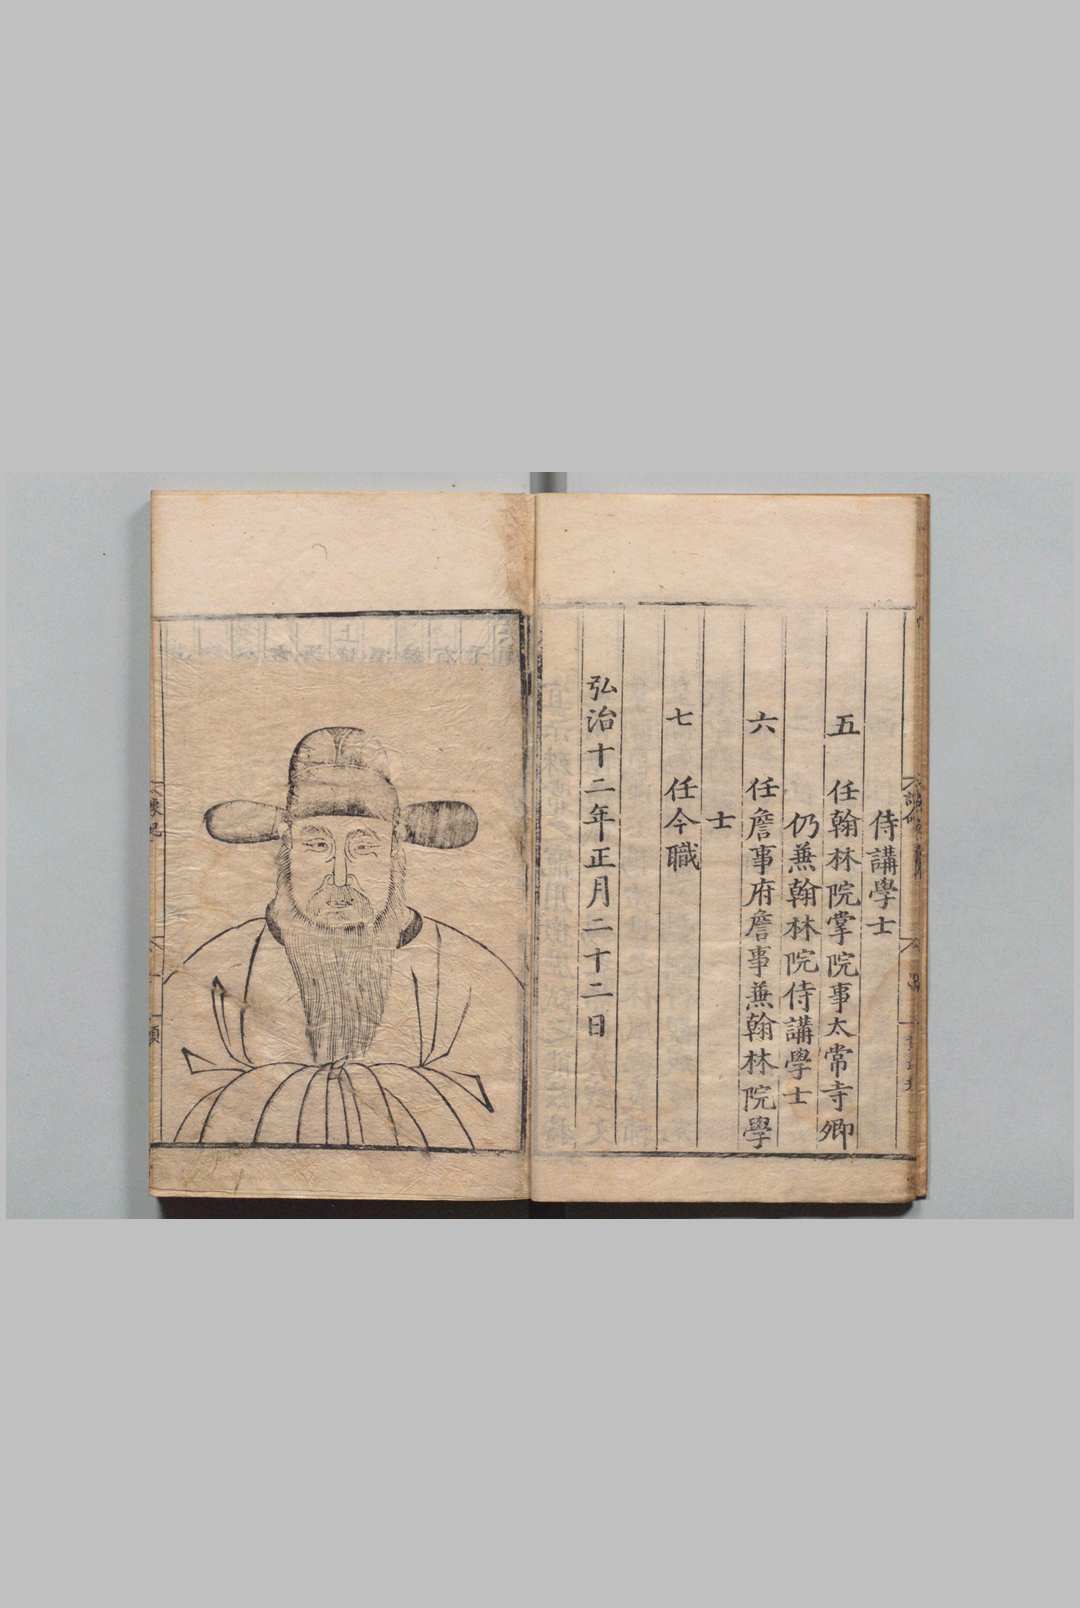 侍講學士
五　任翰林院掌院事太常寺卿
仍兼翰林院侍講學士
六　任詹事府詹事兼翰林院學
士
七　任今職
弘治十二年正月二十二日